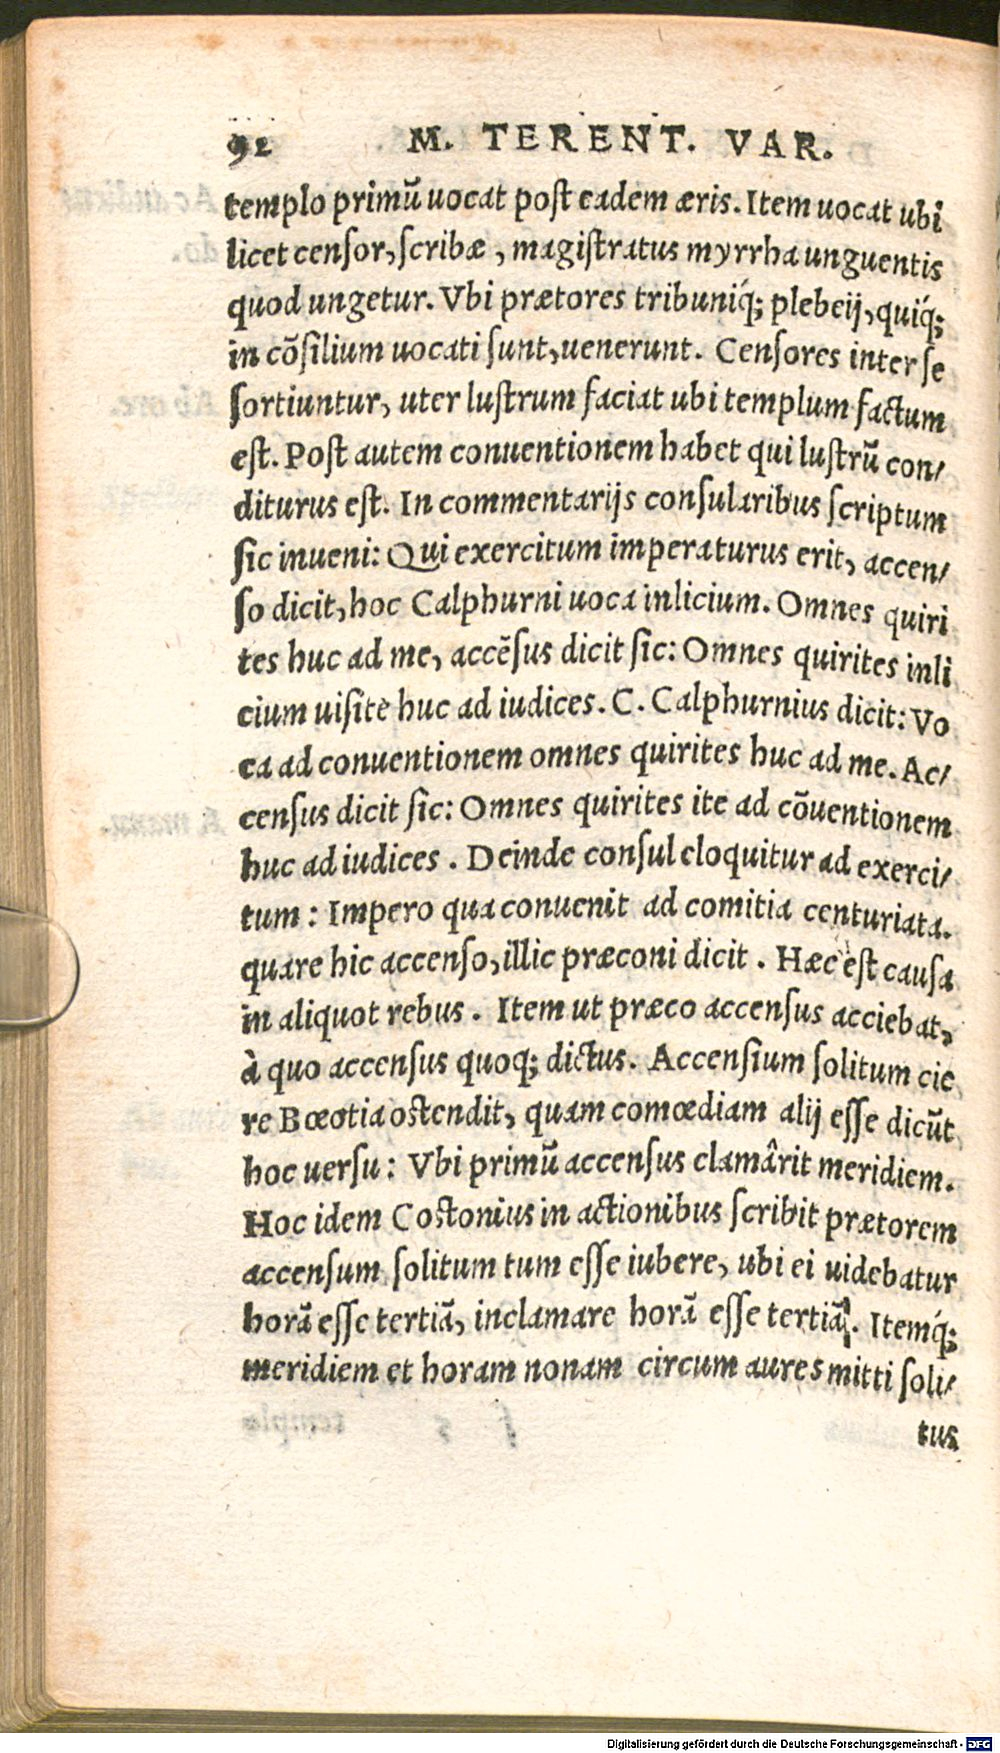 92 M. TERENT. VAR.
templo primũ uocat post eadem æris. Item uocat ubi
licet censor, scribæ, magistratus myrrha unguentis
quod ungetur. Vbi prætores tribuniq́; plebeij, quiq́;
in cõsilium uocati sunt, uenerunt. Censores inter se
sortiuntur, uter lustrum faciat ubi templum factum
est. Post autem conuentionem habet qui lustrũ con/
diturus est. In commentarijs consularibus scriptum
sic inueni: Qui exercitum imperaturus erit, accen/
so dicit, hoc Calphurni uoca inlicium. Omnes quiri
tes huc ad me, accẽsus dicit sic: Omnes quirites inli
cium uisite huc ad iudices. C. Calphurnius dicit: Vo
ca ad conuentionem omnes quirites huc ad me. Ac/
census dicit sic: Omnes quirites ite ad cõuentionem
huc ad iudices. Deinde consul eloquitur ad exerci/
tum: Impero qua conuenit ad comitia centuriata.
quare hic accenso, illic præconi dicit. Hæc est causa
in aliquot rebus. Item ut præco accensus acciebat,
à quo accensus quoq; dictus. Accensium solitum cie
re Bœotia ostendit, quam comœdiam alij esse dicũt
hoc uersu: Vbi primũ accensus clamârit meridiem.
Hoc idem Costonius in actionibus scribit prætorem
accensum solitum tum esse iubere, ubi ei uidebatur
horã esse tertiã, inclamare horã esse tertiã. Itemq́;
meridiem et horam nonam circum aures mitti soli/
tus
Digitalisierung gefördert durch die Deutsche Forschungsgemeinschaft - DFG